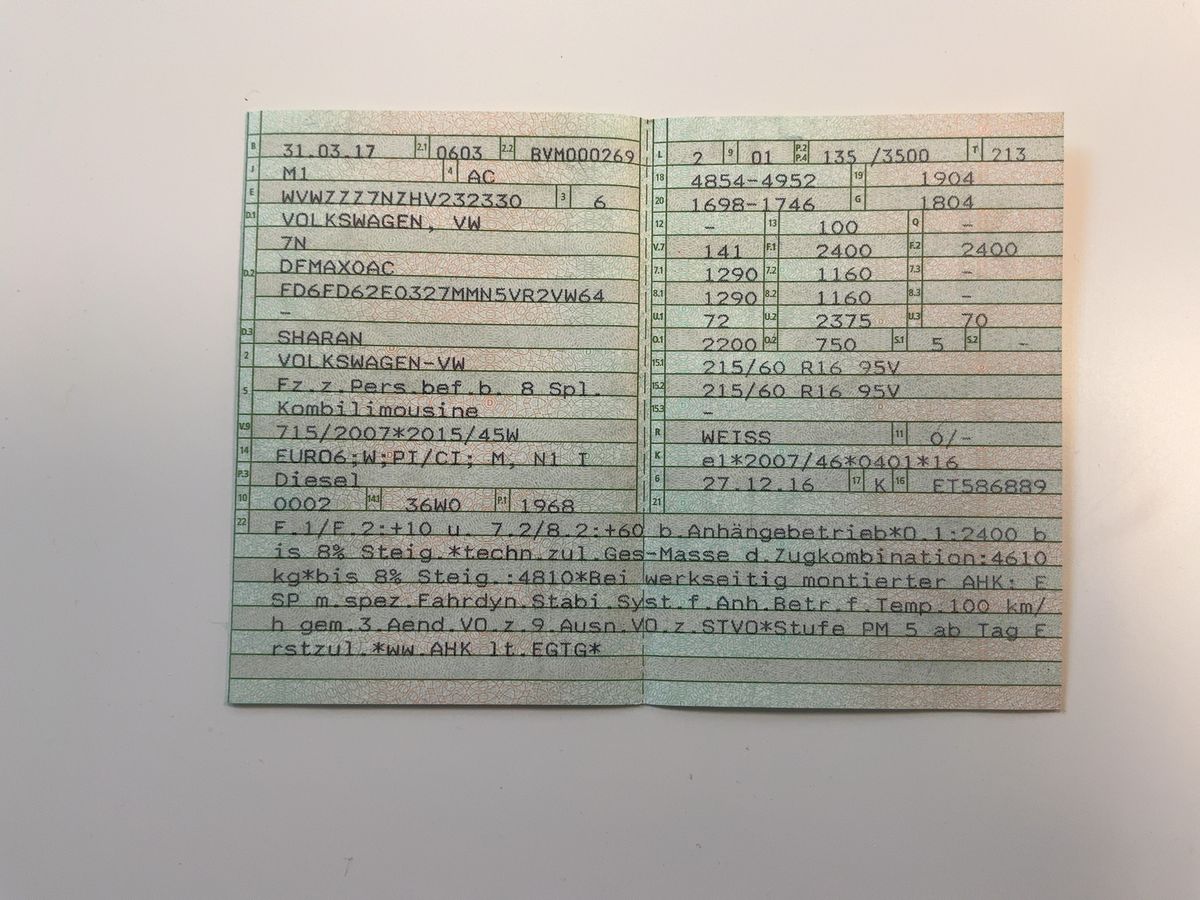 B 31.03.17 2.1 0603 2.2 BVM000269
J M1 4 AC
E WVWZZZ7NZHV232330 3 6
D.1 VOLKSWAGEN, VW
7N
D.2 DFMAX0AC
FD6FD62E0327MMN5VR2VW64
–
D.3 SHARAN
2 VOLKSWAGEN-VW
5 Fz.z.Pers.bef.b. 8 Spl.
Kombilimousine
V.9 715/2007*2015/45W
14 EURO6;W;PI/CI; M, N1 I
P.3 Diesel
10 0002 14.1 36W0 P.1 1968
L 2 9 01 P.2 P.4 135 /3500 T 213
18 4854-4952 19 1904
20 1698-1746 G 1804
12 – 13 100 Q –
V.7 141 F.1 2400 F.2 2400
7.1 1290 7.2 1160 7.3 –
8.1 1290 8.2 1160 8.3 –
U.1 72 U.2 2375 U.3 70
O.1 2200 O.2 750 S.1 5 S.2 –
15.1 215/60 R16 95V
15.2 215/60 R16 95V
15.3 –
R WEISS 11 0/-
K e1*2007/46*0401*16
6 27.12.16 17 K 16 ET586889
21
22 F.1/F.2:+10 u. 7.2/8.2:+60 b.Anhängebetrieb*O.1:2400 b
is 8% Steig.*techn.zul.Ges-Masse d.Zugkombination:4610
kg*bis 8% Steig.:4810*Bei werkseitig montierter AHK: E
SP m.spez.Fahrdyn.Stabi.Syst.f.Anh.Betr.f.Temp.100 km/
h gem.3.Aend.VO.z.9.Ausn.VO.z.STVO*Stufe PM 5 ab Tag E
rstzul.*ww.AHK lt.EGTG*